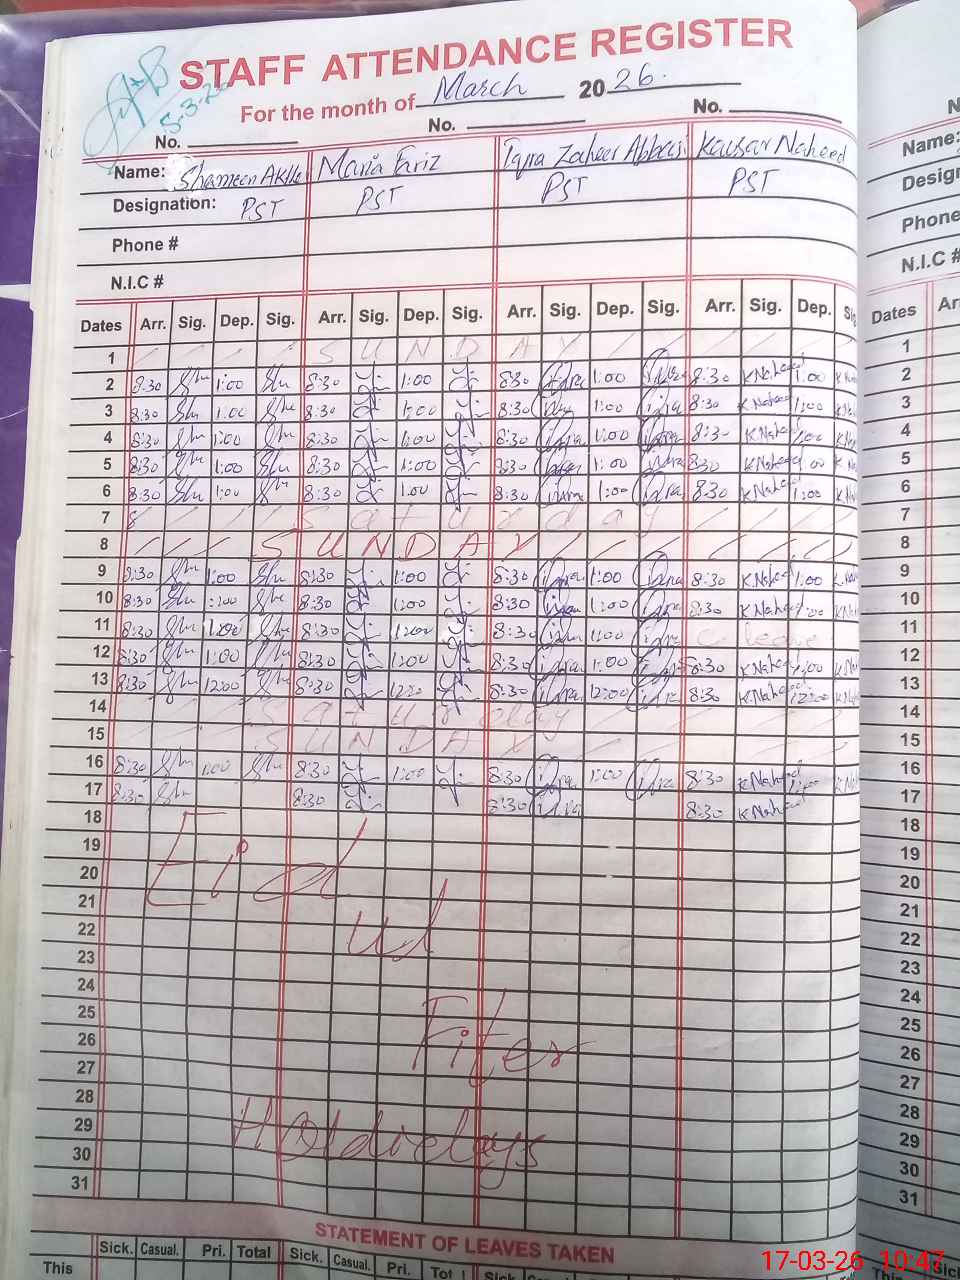 STAFF ATTENDANCE REGISTER
5-3-26
For the month of March 2026.
No. No. No.
Name: Shameen Maria Fariz Iqra Zaheer Abbasi Kausar Naheed
Designation: PST PST PST PST
Phone #
N.I.C #
Dates Arr. Sig. Dep. Sig. Arr. Sig. Dep. Sig. Arr. Sig. Dep. Sig. Arr. Sig. Dep.
1 SUNDAY
2 8:30 Shu 1:00 Shu 8:30 1:00 8:30 Iqra 1:00 Iqra 8:30 K.Naheed 1:00
3 8:30 Shu 1:00 Shu 8:30 1:00 8:30 Iqra 1:00 Iqra 8:30 K Naheed 1:00
4 8:30 Shu 1:00 Shu 8:30 1:00 8:30 Iqra 1:00 Iqra 8:30 K Naheed 1:00
5 8:30 Shu 1:00 Shu 8:30 1:00 8:30 Iqra 1:00 Iqra 8:30 K Naheed 1:00
6 8:30 Shu 1:00 Shu 8:30 1:00 8:30 Iqra 1:00 Iqra 8:30 K Naheed 1:00
7 Saturday
8 SUNDAY
9 8:30 Shu 1:00 Shu 8:30 1:00 8:30 Iqra 1:00 Iqra 8:30 K.Naheed 1:00
10 8:30 Shu 1:00 Shu 8:30 1:00 8:30 Iqra 1:00 Iqra 8:30 K.Naheed 1:00
11 8:30 Shu 1:00 Shu 8:30 1:00 8:30 Iqra 1:00 Iqra C leave
12 8:30 Shu 1:00 Shu 8:30 1:00 8:30 Iqra 1:00 Iqra 8:30 K Naheed 1:00
13 8:30 Shu 12:00 Shu 8:30 12:00 8:30 Iqra 12:00 Iqra 8:30 K.Naheed 12:00
14 Saturday
15 SUNDAY
16 8:30 Shu 1:00 Shu 8:30 1:00 8:30 Iqra 1:00 Iqra 8:30 K Naheed 1:00
17 8:30 Shu 8:30 8:30 Iqra 8:30 K Naheed
18
19
20 Eid
21
22 ul
23
24
25
26 Fiter
27
28
29 Holdiedays
30
31
STATEMENT OF LEAVES TAKEN
Sick. Casual. Pri. Total Sick. Casual. Pri. Sick
This
Name:
Design
Phone
N.I.C #
Dates
1
2
3
4
5
6
7
8
9
10
11
12
13
14
15
16
17
18
19
20
21
22
23
24
25
26
27
28
29
30
31
17-03-26 10:47